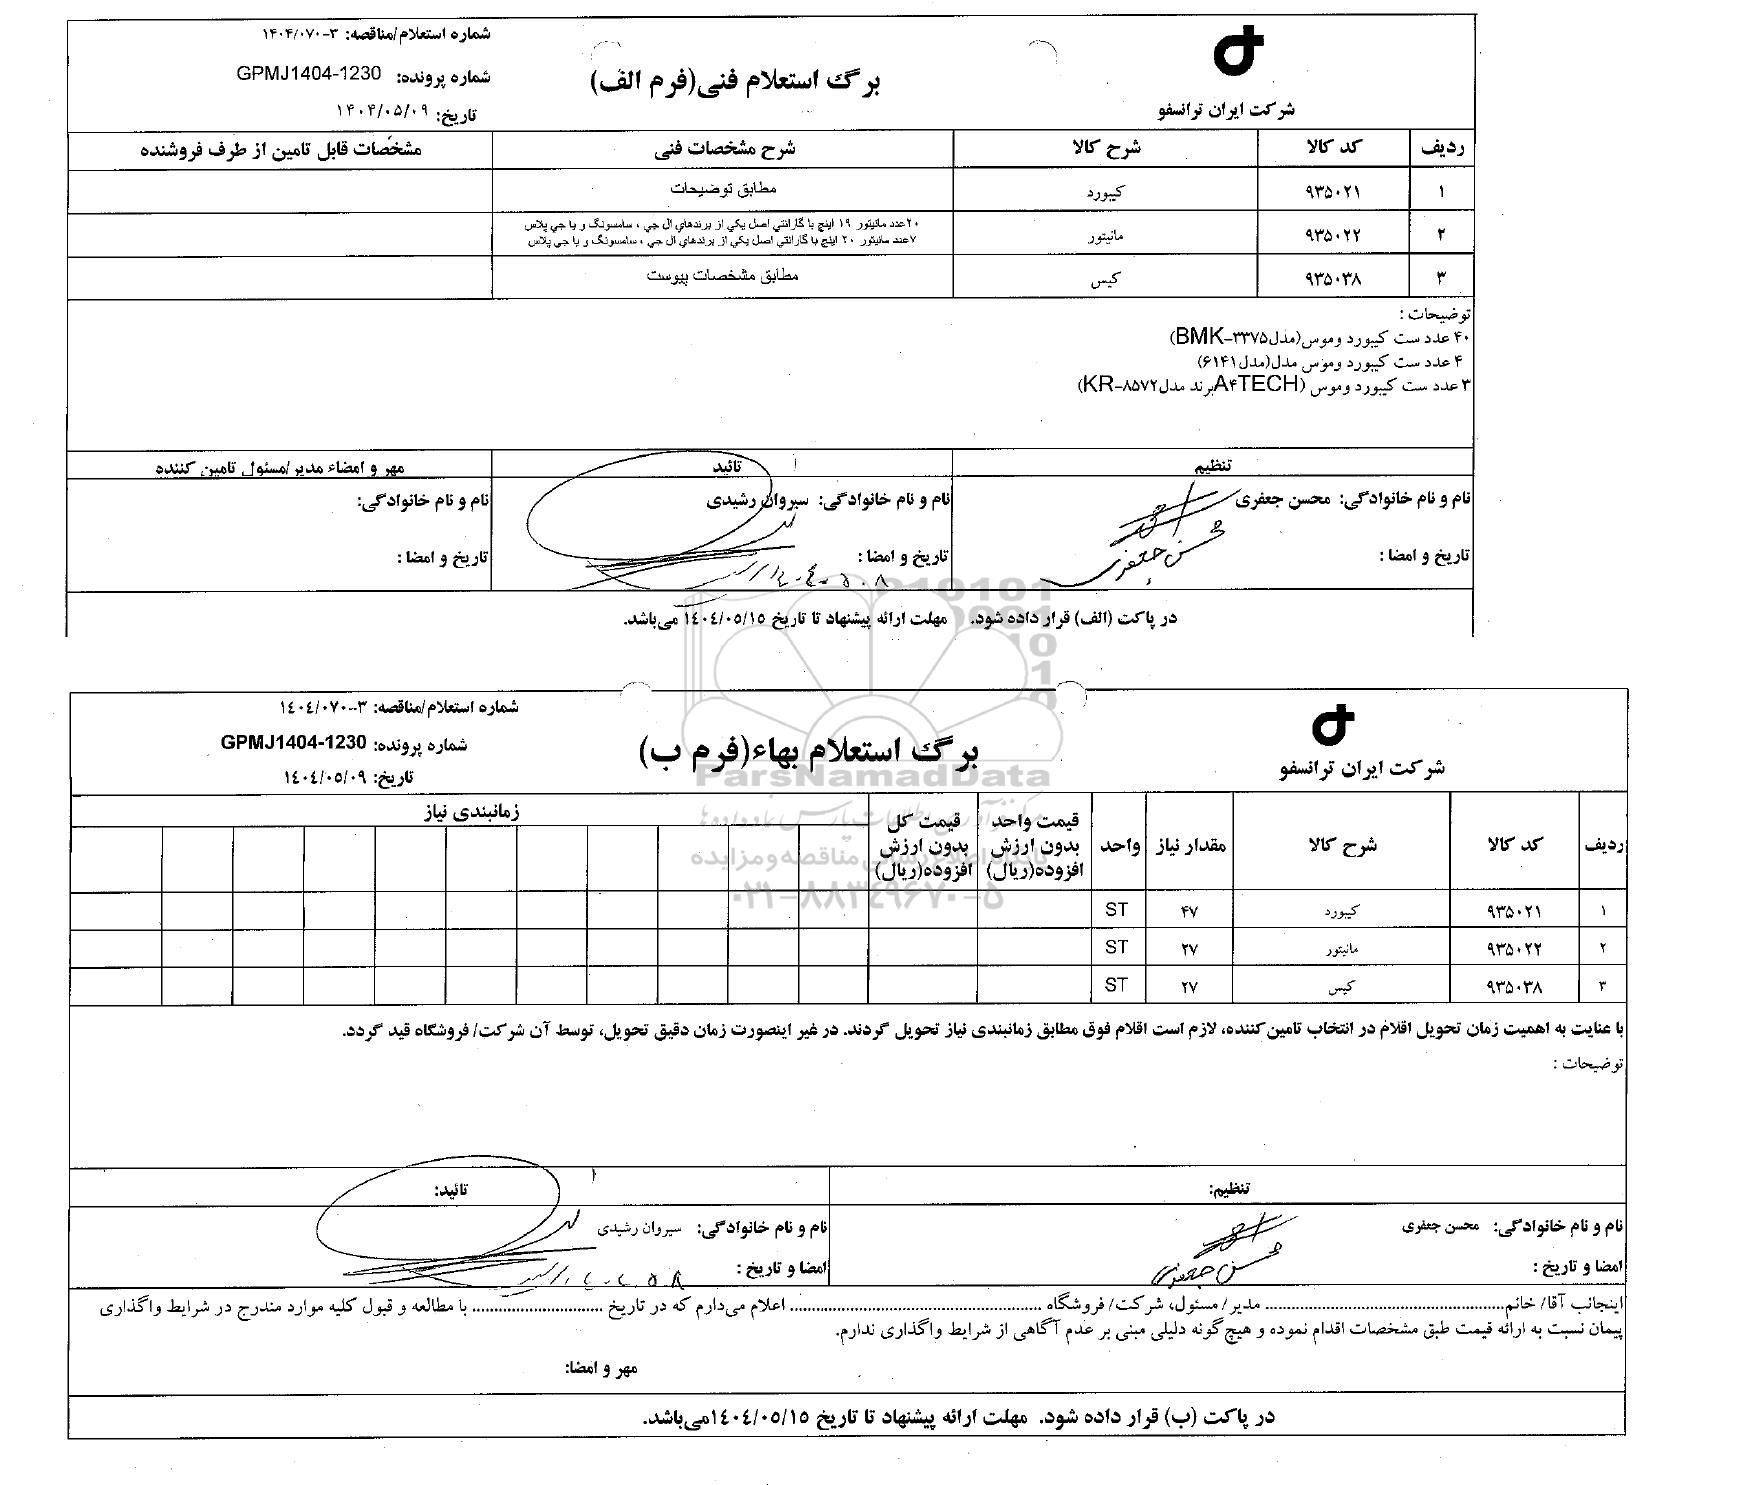 شرکت ایران ترانسفو
برگ استعلام فنی(فرم الف)
شماره استعلام/مناقصه: ۱۴۰۴/۰۷۰-۳
شماره پرونده: GPMJ1404-1230
تاریخ: ۱۴۰۴/۰۵/۰۹
ردیف کد کالا شرح کالا شرح مشخصات فنی مشخصات قابل تامین از طرف فروشنده
۱ ۹۳۵۰۲۱ کیبورد مطابق توضیحات
۲ ۹۳۵۰۲۲ مانیتور ۲۰عدد مانیتور ۱۹ اینچ با گارانتي اصل يکي از برندهاي ال جي ، سامسونگ و يا جي پلاس
۷عدد مانیتور ۲۰ اینچ با گارانتي اصل يکي از برندهاي ال جي ، سامسونگ و يا جي پلاس
۳ ۹۳۵۰۳۸ کیس مطابق مشخصات پیوست
توضیحات :
۴۰ عدد ست کیبورد وموس(مدل۳۳۷۵-BMK)
۴ عدد ست کیبورد وموس مدل(مدل۶۱۴۱)
۳ عدد ست کیبورد وموس (A۴TECHبرند مدل۸۵۷۲-KR)
تنظیم تائید مهر و امضاء مدیر/مسئول تامین کننده
نام و نام خانوادگی: محسن جعفری نام و نام خانوادگی: سیروان رشیدی نام و نام خانوادگی:
محسن جعفری
تاریخ و امضا : تاریخ و امضا : تاریخ و امضا :
در پاکت (الف) قرار داده شود. مهلت ارائه پیشنهاد تا تاریخ ۱٤۰٤/۰٥/۱٥ می‌باشد.
شرکت ایران ترانسفو
برگ استعلام بهاء(فرم ب)
شماره استعلام/مناقصه: ۱٤۰٤/۰۷۰-۳
شماره پرونده: GPMJ1404-1230
تاریخ: ۱٤۰٤/۰٥/۰۹
ParsNamadData
پایگاه اطلاع رسانی مناقصه و مزایده
۰۲۱-۸۸۳۴۹۶۷۰-۵
ردیف کد کالا شرح کالا مقدار نیاز واحد قیمت واحد بدون ارزش افزوده(ریال) قیمت کل بدون ارزش افزوده(ریال) زمانبندی نیاز
۱ ۹۳۵۰۲۱ کیبورد ۴۷ ST
۲ ۹۳۵۰۲۲ مانیتور ۲۷ ST
۳ ۹۳۵۰۳۸ کیس ۲۷ ST
با عنایت به اهمیت زمان تحویل اقلام در انتخاب تامین‌کننده، لازم است اقلام فوق مطابق زمانبندی نیاز تحویل گردند. در غیر اینصورت زمان دقیق تحویل، توسط آن شرکت/ فروشگاه قید گردد.
توضیحات :
تنظیم: تائید:
نام و نام خانوادگی: محسن جعفری نام و نام خانوادگی: سیروان رشیدی
محسن جعفری
امضا و تاریخ : امضا و تاریخ :
اینجانب آقا/ خانم........................ مدیر/ مسئول، شرکت/ فروشگاه ........................ اعلام می‌دارم که در تاریخ ........................ با مطالعه و قبول کلیه موارد مندرج در شرایط واگذاری
پیمان نسبت به ارائه قیمت طبق مشخصات اقدام نموده و هیچ‌گونه دلیلی مبنی بر عدم آگاهی از شرایط واگذاری ندارم.
مهر و امضا:
در پاکت (ب) قرار داده شود. مهلت ارائه پیشنهاد تا تاریخ ۱٤۰٤/۰٥/۱٥می‌باشد.